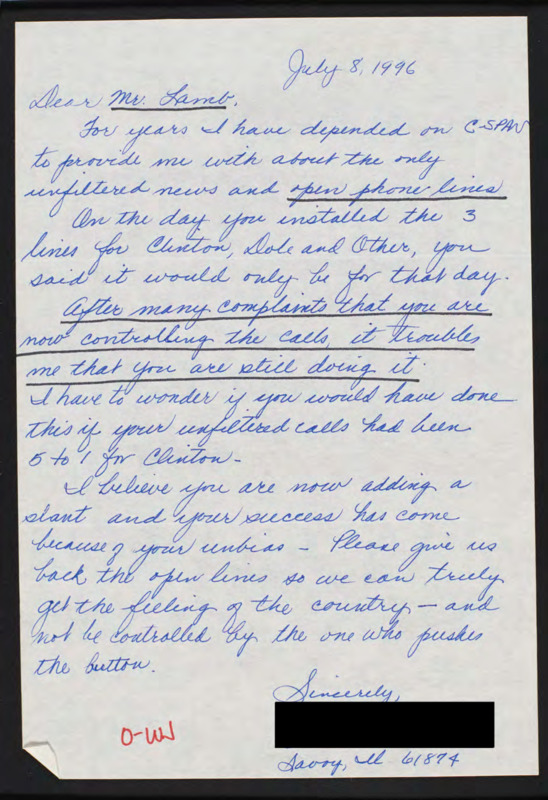 July 8, 1996
Dear Mr. Lamb,
For years I have depended on C-SPAN
to provide me with about the only
unfiltered news and open phone lines
On the day you installed the 3
lines for Clinton, Dole and Other, you
said it would only be for that day.
After many complaints that you are
now controlling the calls, it troubles
me that you are still doing it.
I have to wonder if you would have done
this if your unfiltered calls had been
5 to 1 for Clinton -
I believe you are now adding a
slant and your success has come
because of your unbias - Please give us
back the open lines so we can truly
get the feeling of the country - and
not be controlled by the one who pushes
the button.
Sincerely,
Savoy, Ill 61874